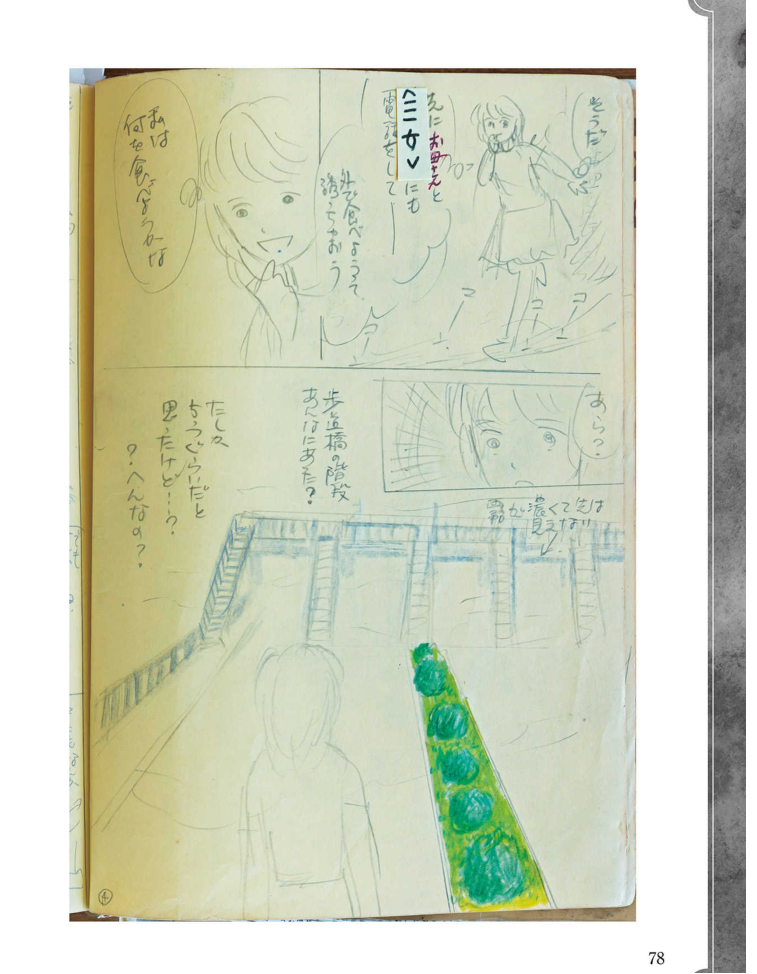 そうだ
先にお母さんと
<三女>にも
電話をして
外で食べようって
誘っちゃおう
私は
何を食べようかな
コ
コ
コ
コ
あら?
歩道橋の階段
あんなにあった?
霧が濃くて先は
見えない
たしか
5つぐらいだと
思ったけど…?
?へんなの?
④
78